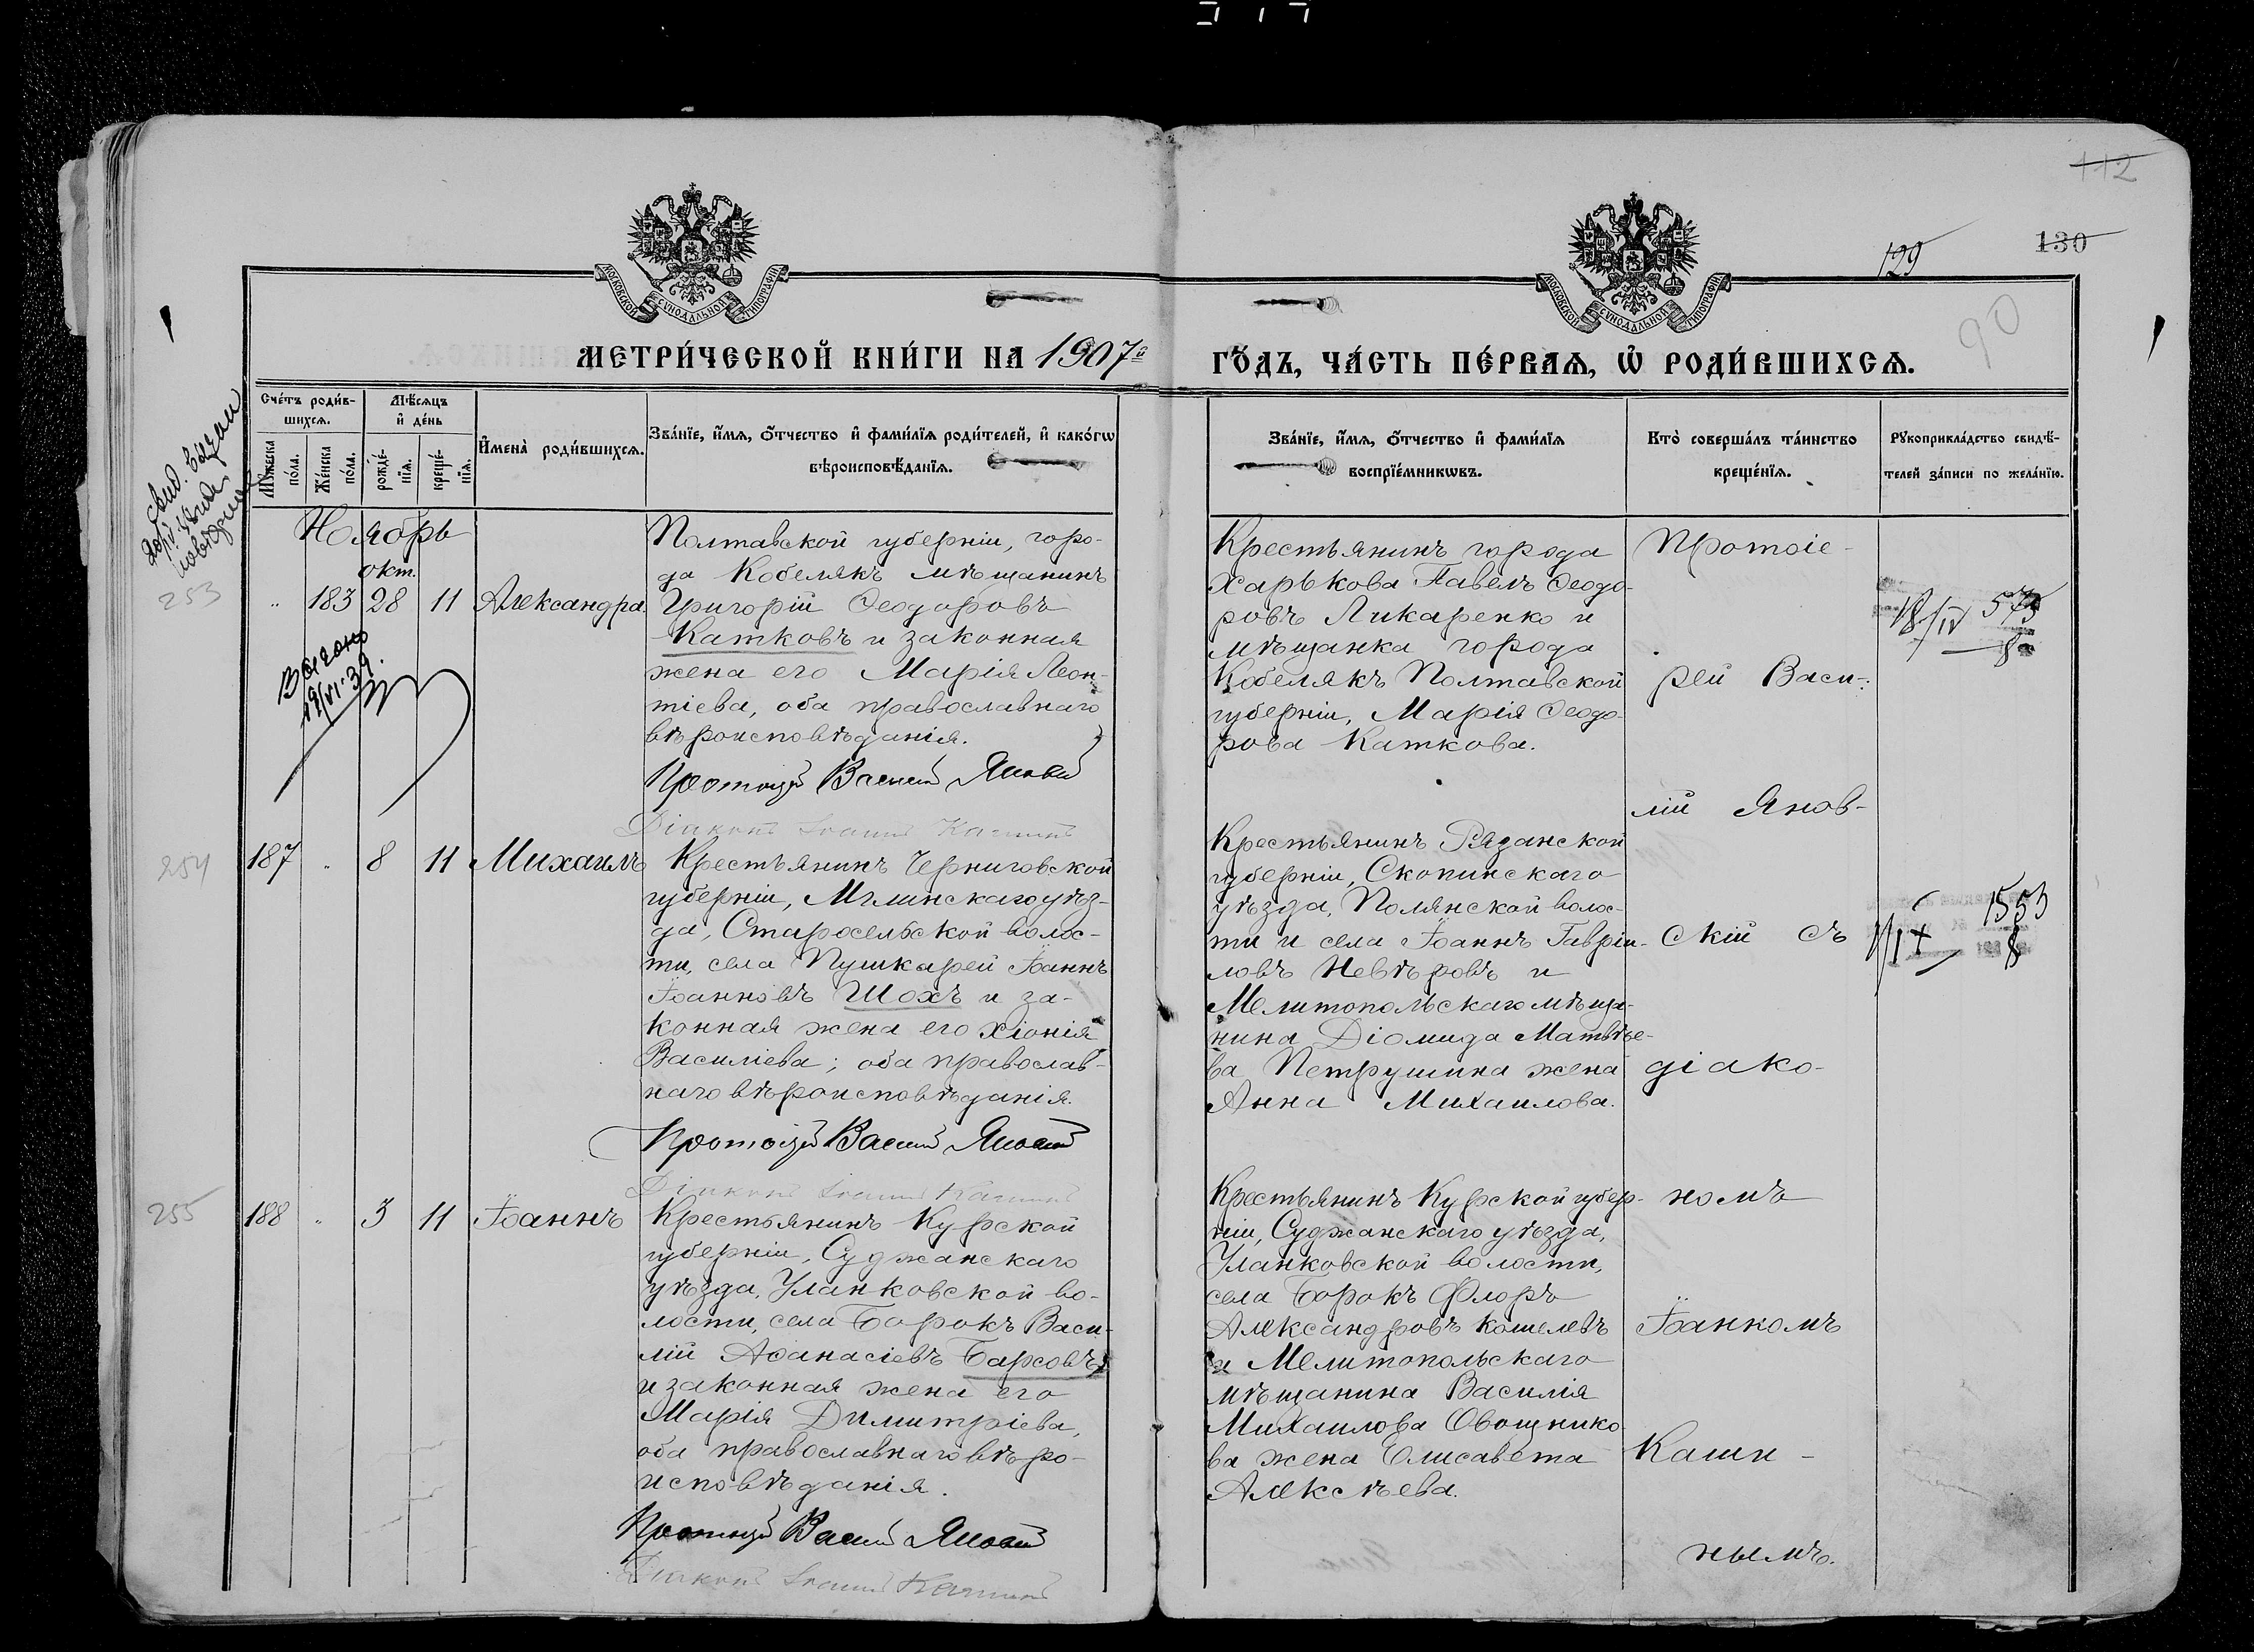 112
130
129
90
МОСКОВСКОЙ СѴНОДАЛЬНОЙ ТИПОГРАФІИ
МОСКОВСКОЙ СѴНОДАЛЬНОЙ ТИПОГРАФІИ
МЕТРИ́ЧЕСКОЙ КНИ́ГИ НА 1907й
ГО́ДЪ, ЧА́СТЬ ПЕ́РВАѦ, Ѡ РОДИ́ВШИХСѦ.
Сче́тъ роди́в-
шихсѧ.
Мꙋжеска
по́ла.
Же́нска
по́ла.
Мѣ́сѧцъ
и де́нь
рожде́-
нїѧ.
креще́-
нїѧ.
Имена̀ роди́вшихсѧ.
Зва́нїе, и́мѧ, о́тчество и фами́лїѧ роди́телей, и како́гѡ
вѣроисповѣ́данїѧ.
Зва́нїе, и́мѧ, о́тчество и фами́лїѧ
воспрїе́мникѡвъ.
Кто̀ соверша́лъ та́инство
креще́нїѧ.
Рꙋкоприкла́дство свидѣ́-
телей за́писи по жела́нїю.
Ноябрь
окт.
253
" 183 28 11 Александра
Полтавской губерніи, горо-
да Кобелякъ мѣщанинъ
Григорій Ѳеодоровъ
Катковъ и законная
жена его Марія Леон-
тіева, оба православнаго
вѣроисповѣданія.
Протоіерей Василій Яновскій
Діаконъ Іоаннъ Кашинъ
Крестьянинъ города
Харькова Павелъ Ѳеодо-
ровъ Ликаренко и
мѣщанка города
Кобелякъ Полтавской
губерніи, Марія Ѳеодо-
рова Каткова.
18/IV 575
8
254
187 " 8 11 Михаилъ
Крестьянинъ Черниговской
губерніи, Мглинскаго уѣз-
да, Старосельской волос-
ти, села Пушкарей Іоаннъ
Іоанновъ Шохъ и за-
конная жена его Хіонія
Василіева; оба православ-
наго вѣроисповѣданія.
Протоіерей Василій Яновскій
Діаконъ Іоаннъ Кашинъ
Крестьянинъ Рязанской
губерніи, Скопинскаго
уѣзда, Полянской волос-
ти и села Іоаннъ Гавріи-
ловъ Невѣровъ и
Мелитопольскаго мѣща-
нина Діомида Матвѣе-
ва Петрушина жена
Анна Михаилова.
1553
8
255
188 " 3 11 Іоаннъ
Крестьянинъ Курской
губерніи, Суджанскаго
уѣзда, Уланковской во-
лости, села Борокъ Васи-
лій Аѳанасіевъ Барсовъ
и законная жена его
Марія Димитріева,
оба православнаго вѣро-
исповѣданія.
Протоіерей Василій Яновскій
Діаконъ Іоаннъ Кашинъ
Крестьянинъ Курской губер-
ніи, Суджанскаго уѣзда,
Уланковской волости,
села Борокъ Флоръ
Александровъ Кошелевъ
и Мелитопольскаго
мѣщанина Василія
Михаилова Овощнико-
ва жена Елисавета
Алексѣева.
Протоіе-
рей Васи-
лій Янов-
скій съ
діако-
номъ
Іоанномъ
Каши-
нымъ.